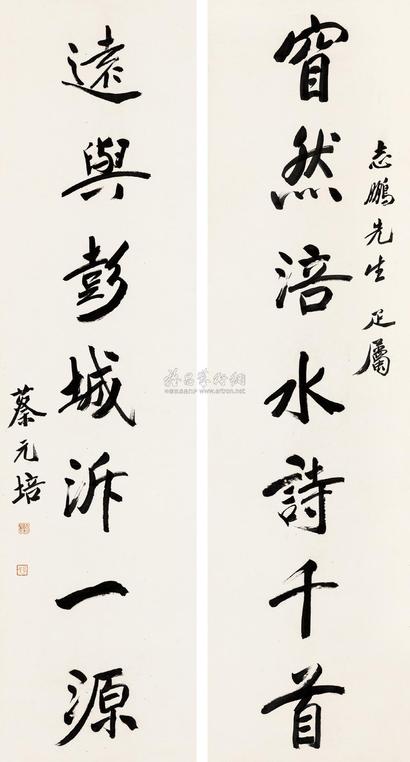 志鵬先生疋屬
窅然涪水詩千首
遠與彭城泝一源
蔡元培
雅昌藝術網
www.artron.net